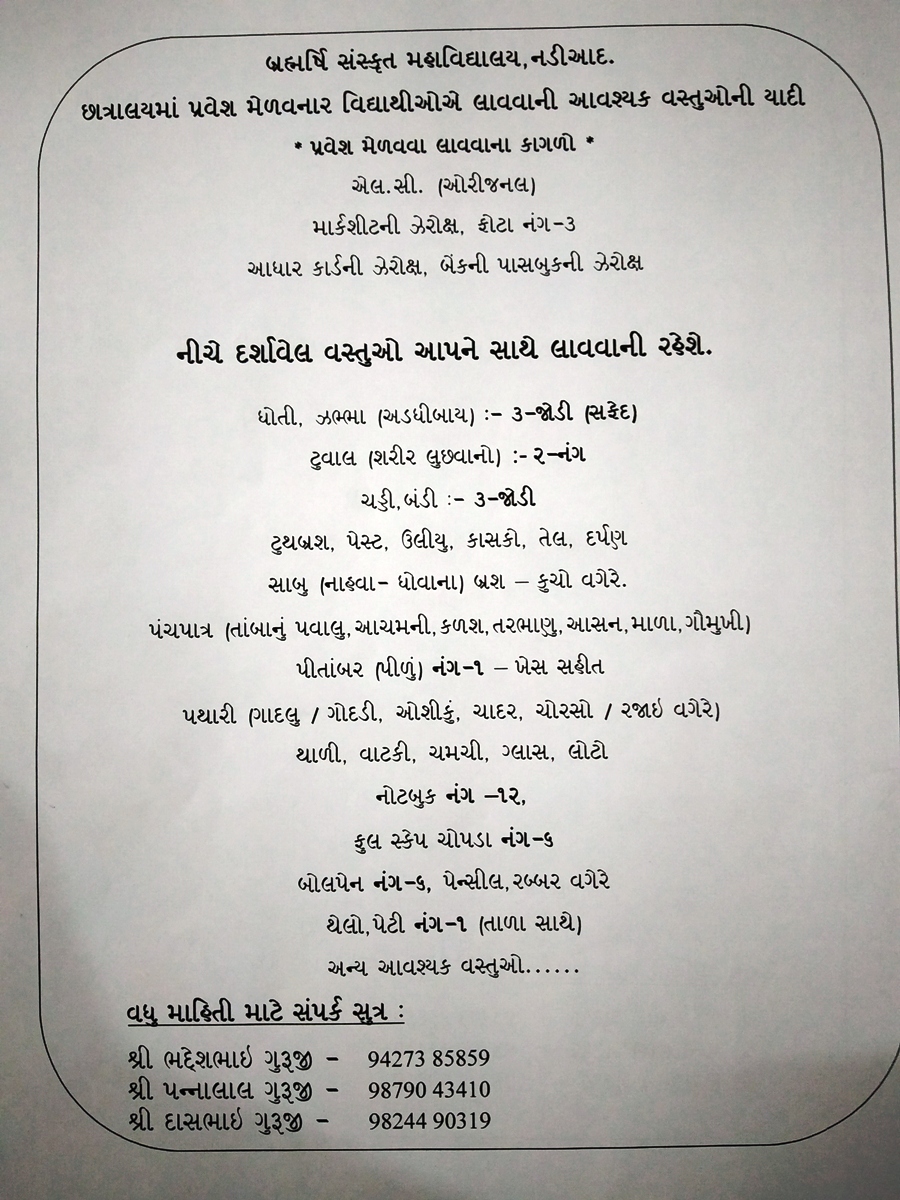 બ્રહ્મર્ષિ સંસ્કૃત મહાવિદ્યાલય,નડીઆદ.
છાત્રાલયમાં પ્રવેશ મેળવનાર વિદ્યાથીઓએ લાવવાની આવશ્યક વસ્તુઓની યાદી
* પ્રવેશ મેળવવા લાવવાના કાગળો *
એલ.સી. (ઓરીજનલ)
માર્કશીટની ઝેરોક્ષ, ફોટા નંગ-૩
આધાર કાર્ડની ઝેરોક્ષ, બેંકની પાસબુકની ઝેરોક્ષ
નીચે દર્શાવેલ વસ્તુઓ આપને સાથે લાવવાની રહેશે.
ધોતી, ઝભ્ભા (અડધીબાય) :- ૩-જોડી (સફેદ)
ટુવાલ (શરીર લુછવાનો) :- ૨-નંગ
ચડ્ડી,બંડી :- ૩-જોડી
ટુથબ્રશ, પેસ્ટ, ઉલીયુ, કાસકો, તેલ, દર્પણ
સાબુ (નાહવા- ધોવાના) બ્રશ – કુચો વગેરે.
પંચપાત્ર (તાંબાનું પવાલુ,આચમની,કળશ,તરભાણુ,આસન,માળા,ગૌમુખી)
પીતાંબર (પીળું) નંગ-૧ – ખેસ સહીત
પથારી (ગાદલુ / ગોદડી, ઓશીકું, ચાદર, ચોરસો / રજાઇ વગેરે)
થાળી, વાટકી, ચમચી, ગ્લાસ, લોટો
નોટબુક નંગ –૧૨,
ફુલ સ્કેપ ચોપડા નંગ-૬
બોલપેન નંગ-૬, પેન્સીલ,રબ્બર વગેરે
થેલો,પેટી નંગ-૧ (તાળા સાથે)
અન્ય આવશ્યક વસ્તુઓ......
વધુ માહિતી માટે સંપર્ક સુત્ર :
શ્રી ભદ્દેશભાઇ ગુરૂજી - 94273 85859
શ્રી પન્નાલાલ ગુરૂજી - 98790 43410
શ્રી દાસભાઇ ગુરૂજી - 98244 90319